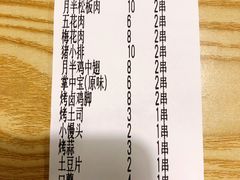 月半松板肉 10 2串
五花肉 6 2串
梅花肉 6 2串
猪小排 10 2串
月半鸡中翅 8 2串
掌中宝(原味) 6 2串
烤卤鸡脚 8 2串
烤土司 3 1串
小馒头 2 1串
烤蒜 3 1串
土豆片 2 1串